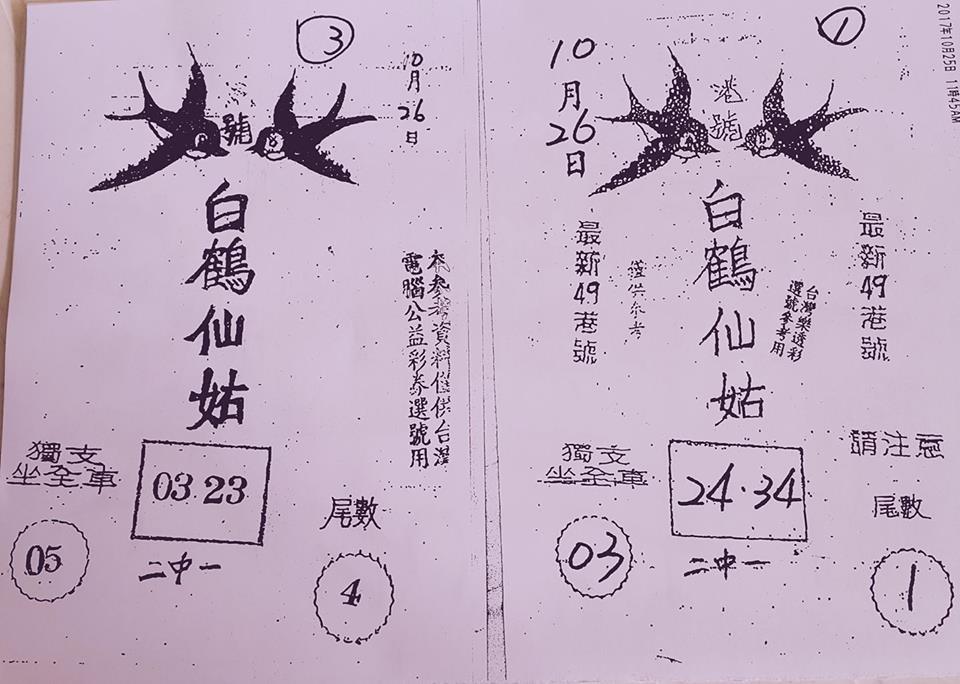 ③
10月26日
號
白鶴仙姑
本參考資料僅供台灣
電腦公益彩券選號用
獨支
坐全車
05
03.23
二中一
尾數
4
2017年10月25日 11時45AM
①
10月26日
港號
白鶴仙姑
最新49港號
最新49港號
僅供參考
台灣樂透彩
選號參考用
獨支
坐全車
03
24.34
二中一
請注意
尾數
1